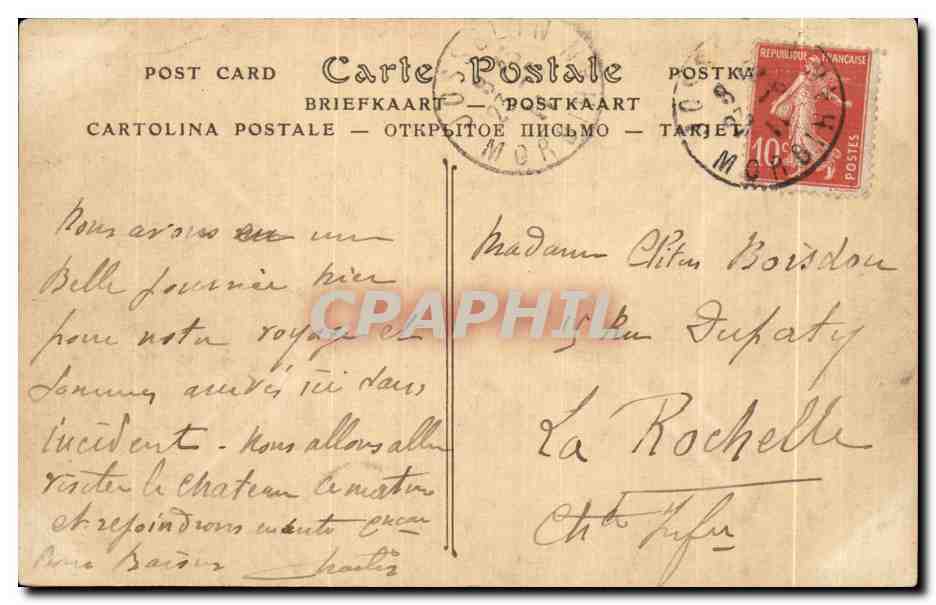 POST CARD Carte Postale POSTKA
BRIEFKAART — POSTKAART
CARTOLINA POSTALE — ОТКРЫТОЕ ПИСЬМО — TARJET
JOSSELIN
MORBIHAN
MORBIHAN
REPUBLIQUE FRANÇAISE
10c
POSTES
CPAPHIL
Nous avons eu une
Belle journée hier
pour notre voyage et
sommes arrivés ici sans
incident - Nous allons aller
visiter le chateau ce matin
et rejoindrons
Bons Baisers
Madame Boisdon
15 Rue Dupaty
La Rochelle
Chte Infre